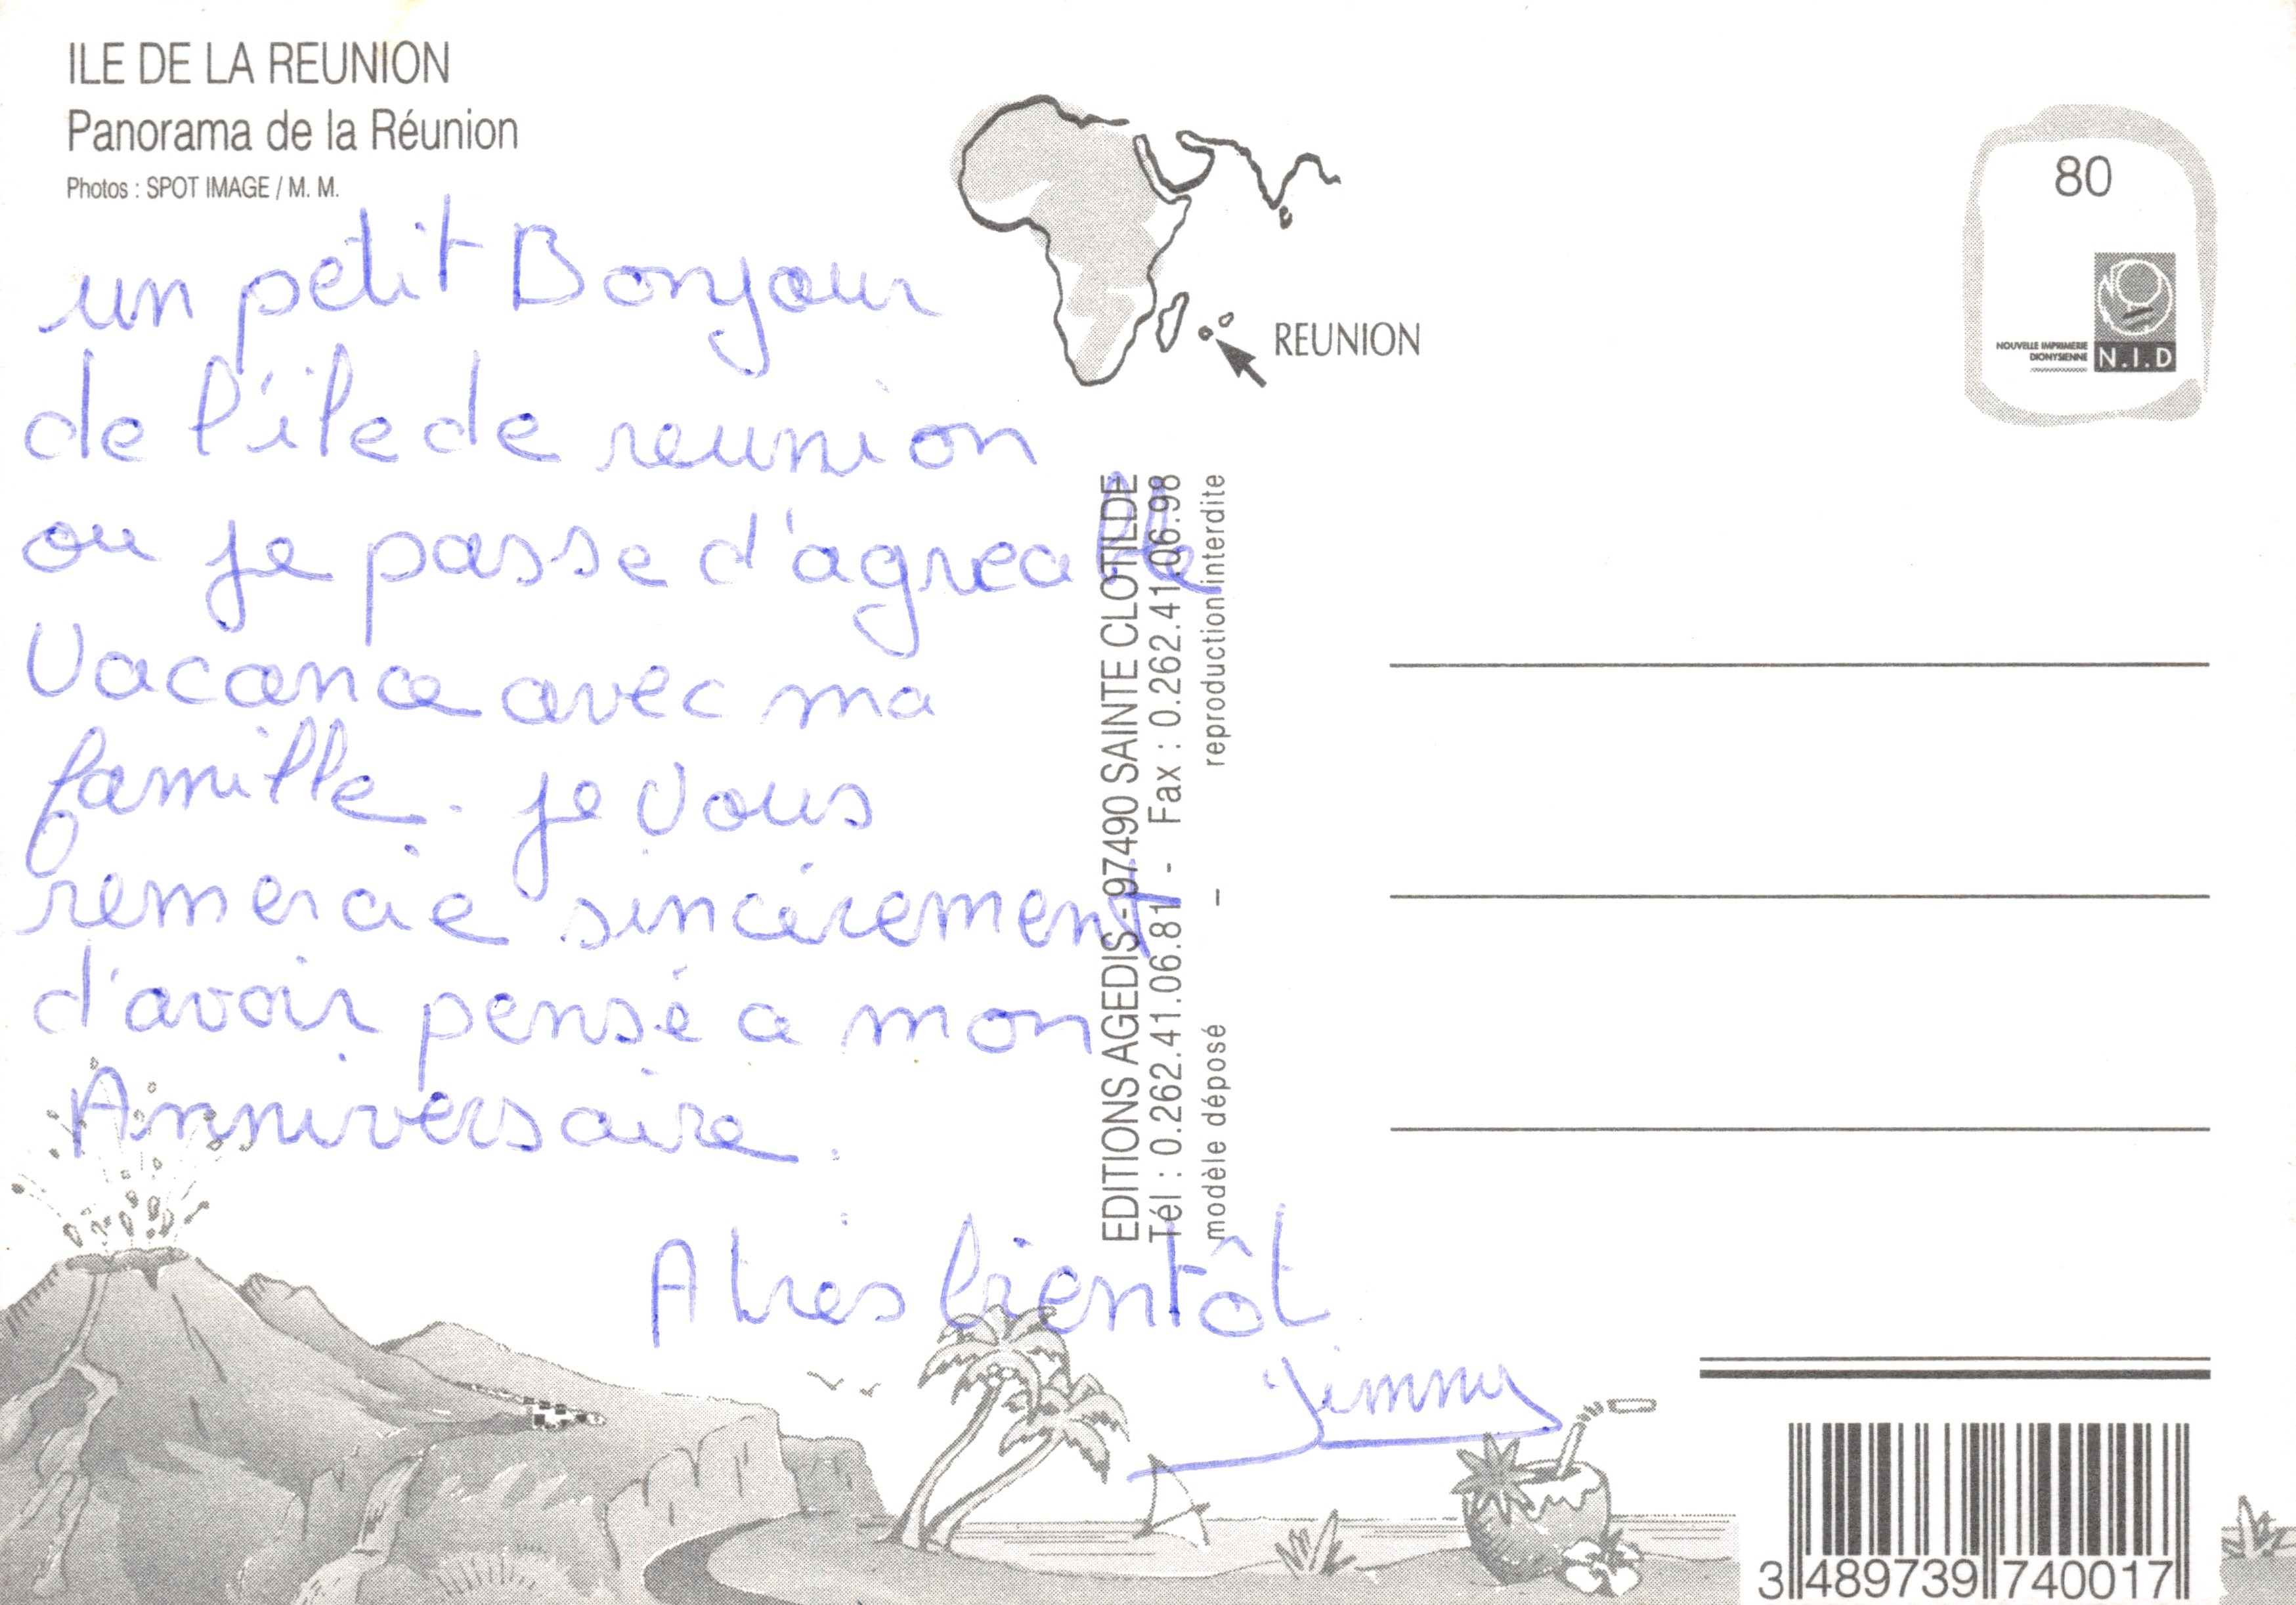 ILE DE LA REUNION
Panorama de la Réunion
Photos : SPOT IMAGE / M. M.
un petit Bonjour
de l'île de reunion
ou je passe d'agreable
Vacance avec ma
famille. je vous
remercie sincèrement
d'avoir pensé a mon
Anniversaire.
A tres bientôt
Jimmy
REUNION
EDITIONS AGEDIS - 97490 SAINTE CLOTILDE
Tél : 0.262.41.06.81 - Fax : 0.262.41.06.98
modèle déposé – reproduction interdite
80
NOUVELLE IMPRIMERIE
DIONYSIENNE
N.I.D
3 489739 740017